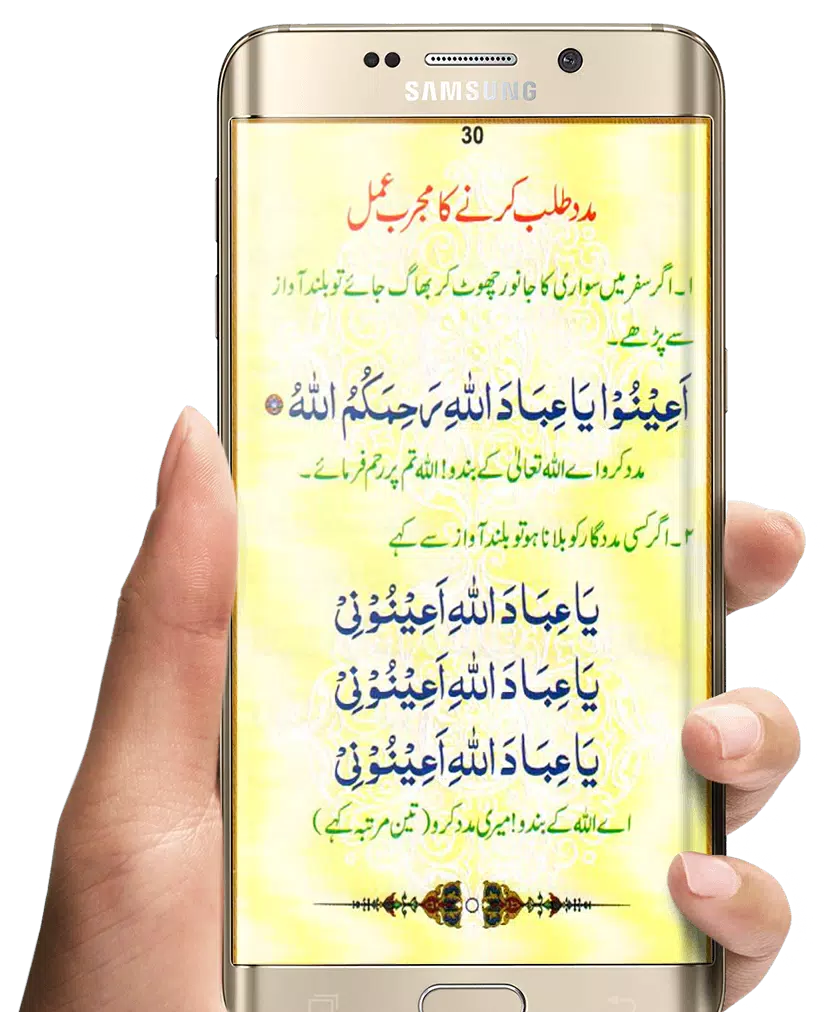 SAMSUNG
30
مدد طلب کرنے کا مجرب عمل
۱۔اگر سفر میں سواری کا جانور چھوٹ کر بھاگ جائے تو بلند آواز
سے پڑھے۔
اَعِيْنُوْا يَا عِبَادَ اللهِ رَحِمَكُمُ اللهُ
مدد کرو اے اللہ تعالیٰ کے بندو! اللہ تم پر رحم فرمائے۔
۲۔اگر کسی مددگار کو بلانا ہو تو بلند آواز سے کہے
يَا عِبَادَ اللهِ اَعِيْنُوْنِيْ
يَا عِبَادَ اللهِ اَعِيْنُوْنِيْ
يَا عِبَادَ اللهِ اَعِيْنُوْنِيْ
اے اللہ کے بندو! میری مدد کرو (تین مرتبہ کہے)